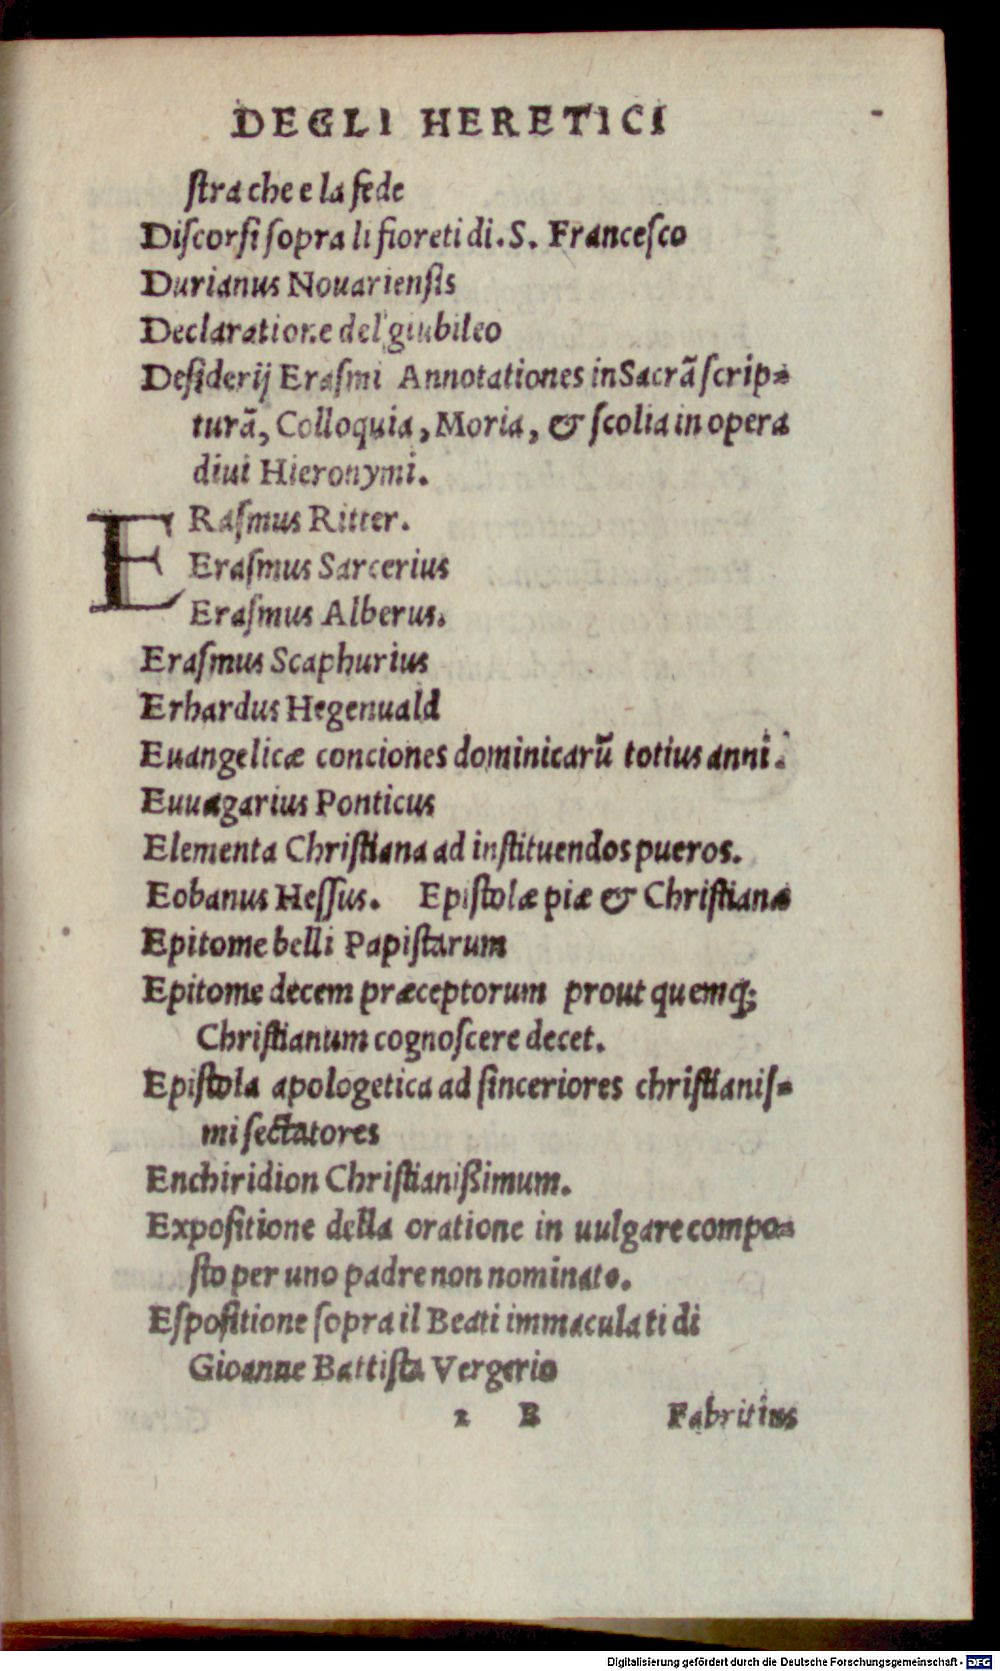 DEGLI HERETICI
ſtra che e la fede
Diſcorſi ſopra li fioreti di. S. Franceſco
Durianus Nouarienſis
Declaratione del giubileo
Deſiderij Eraſmi Annotationes in Sacrã ſcrip⸗
turã, Colloquia, Moria, & ſcolia in opera
diui Hieronymi.
ERaſmus Ritter.
Eraſmus Sarcerius
Eraſmus Alberus.
Eraſmus Scaphurius
Erhardus Hegenuald
Euangelicæ conciones dominicarũ totius anni.
Euuagarius Ponticus
Elementa Chriſtiana ad inſtituendos pueros.
Eobanus Heſſus. Epiſtolæ piæ & Chriſtianæ
Epitome belli Papiſtarum
Epitome decem præceptorum prout quemq;
Chriſtianum cognoſcere decet.
Epiſtola apologetica ad ſinceriores chriſtianiſ⸗
mi ſectatores
Enchiridion Chriſtianißimum.
Expoſitione della oratione in uulgare compo⸗
ſto per uno padre non nominato.
Eſpoſitione ſopra il Beati immaculati di
Gioanne Battiſta Vergerio
2 B Fabritius
Digitalisierung gefördert durch die Deutsche Forschungsgemeinschaft - DFG